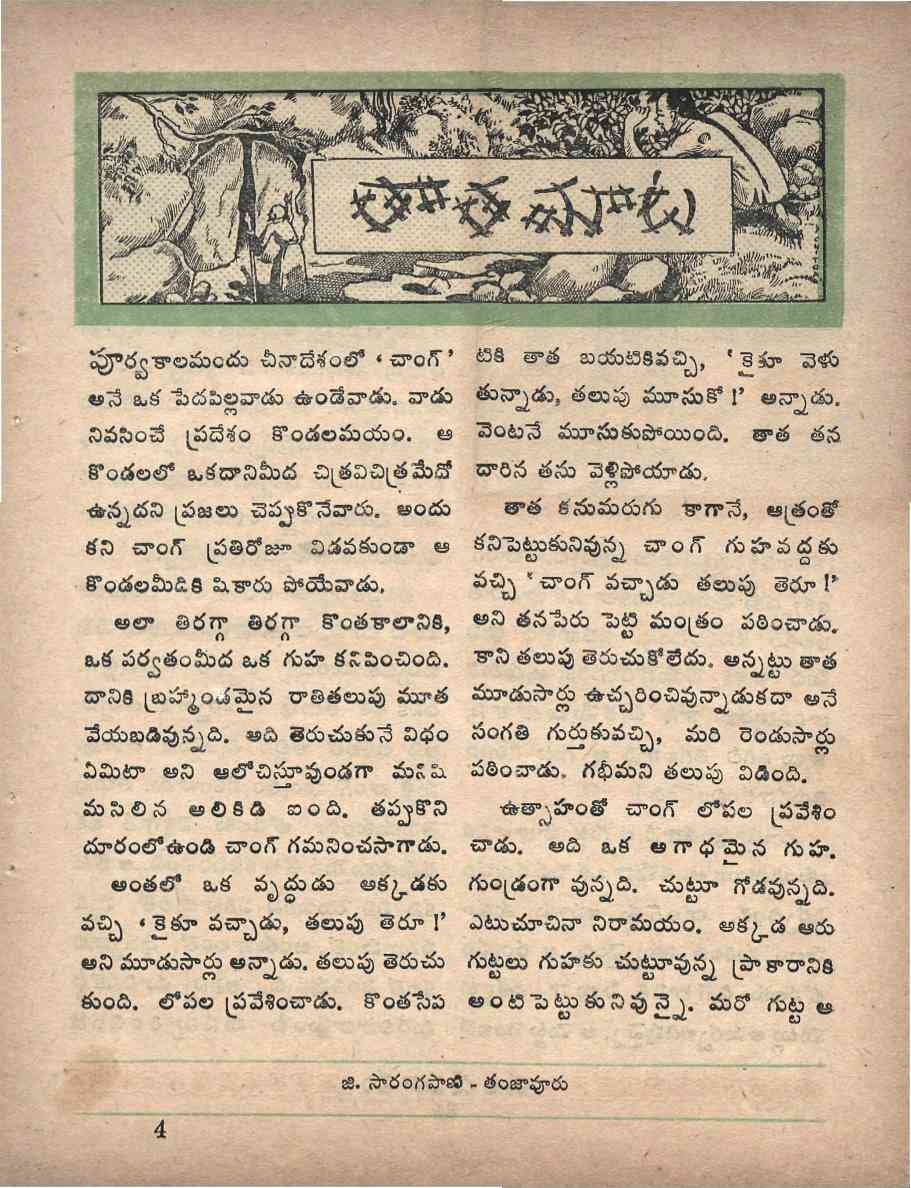 పూర్వకాలమందు చీనాదేశంలో ‘ చాంగ్ ’
అనే ఒక పేదపిల్లవాడు ఉండేవాడు. వాడు
నివసించే ప్రదేశం కొండలమయం. ఆ
కొండలలో ఒకదానిమీద చిత్రవిచిత్రమేదో
ఉన్నదని ప్రజలు చెప్పుకొనేవారు. అందు
కని చాంగ్ ప్రతిరోజూ విడవకుండా ఆ
కొండలమీదికి షికారు పోయేవాడు.
అలా తిరగ్గా తిరగ్గా కొంతకాలానికి,
ఒక పర్వతంమీద ఒక గుహ కనిపించింది.
దానికి బ్రహ్మాండమైన రాతితలుపు మూత
వేయబడివున్నది. అది తెరుచుకునే విధం
ఏమిటా అని ఆలోచిస్తూవుండగా మనిషి
మసిలిన అలికిడి ఐంది. తప్పుకొని
దూరంలోఉండి చాంగ్ గమనించసాగాడు.
అంతలో ఒక వృద్ధుడు అక్కడకు
వచ్చి ‘ కైకూ వచ్చాడు, తలుపు తెరూ !’
అని మూడుసార్లు అన్నాడు. తలుపు తెరుచు
కుంది. లోపల ప్రవేశించాడు. కొంతసేప
టికి తాత బయటికివచ్చి, ‘ కైకూ వెళు
తున్నాడు, తలుపు మూసుకో !’ అన్నాడు.
వెంటనే మూసుకుపోయింది. తాత తన
దారిన తను వెళ్లిపోయాడు.
తాత కనుమరుగు కాగానే, ఆత్రంతో
కనిపెట్టుకునివున్న చాంగ్ గుహవద్దకు
వచ్చి ‘ చాంగ్ వచ్చాడు తలుపు తెరూ !’
అని తనపేరు పెట్టి మంత్రం పఠించాడు.
కాని తలుపు తెరుచుకోలేదు. అన్నట్టు తాత
మూడుసార్లు ఉచ్చరించివున్నాడుకదా అనే
సంగతి గుర్తుకువచ్చి, మరి రెండుసార్లు
పఠించాడు. గభీమని తలుపు విడింది.
ఉత్సాహంతో చాంగ్ లోపల ప్రవేశిం
చాడు. అది ఒక అగాధమైన గుహ.
గుండ్రంగా వున్నది. చుట్టూ గోడవున్నది.
ఎటుచూచినా నిరామయం. అక్కడ ఆరు
గుట్టలు గుహకు చుట్టూవున్న ప్రాకారానికి
అంటిపెట్టుకునివున్నై. మరో గుట్ట ఆ
జి. సారంగపాణి - తంజావూరు
4